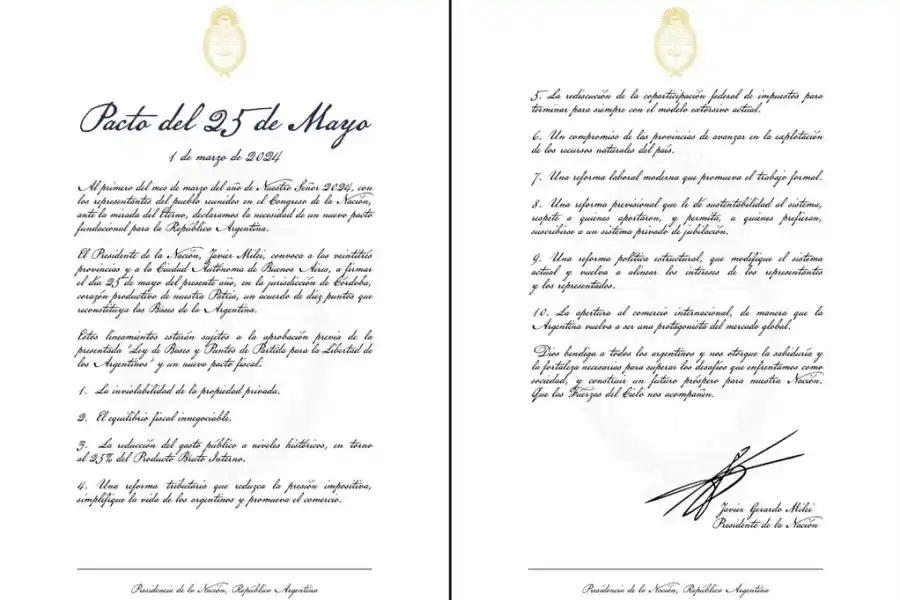 Pacto del 25 de Mayo
1 de marzo de 2024
Al primero del mes de marzo del año de Nuestro Señor 2024, con
los representantes del pueblo reunidos en el Congreso de la Nación,
ante la mirada del Eterno, declaramos la necesidad de un nuevo pacto
fundacional para la República Argentina.
El Presidente de la Nación, Javier Milei, convoca a las veintitrés
provincias y a la Ciudad Autónoma de Buenos Aires, a firmar
el día 25 de mayo del presente año, en la jurisdicción de Córdoba,
corazón productivo de nuestra Patria, un acuerdo de diez puntos que
reconstituya las Bases de la Argentina.
Estos lineamientos estarán sujetos a la aprobación previa de la
presentada "Ley de Bases y Puntos de Partida para la Libertad de
los Argentinos" y un nuevo pacto fiscal.
1. La inviolabilidad de la propiedad privada.
2. El equilibrio fiscal innegociable.
3. La reducción del gasto público a niveles históricos, en torno
al 25% del Producto Bruto Interno.
4. Una reforma tributaria que reduzca la presión impositiva,
simplifique la vida de los argentinos y promueva el comercio.
Presidencia de la Nación, República Argentina
5. La rediscución de la coparticipación federal de impuestos para
terminar para siempre con el modelo extorsivo actual.
6. Un compromiso de las provincias de avanzar en la explotación
de los recursos naturales del país.
7. Una reforma laboral moderna que promueva el trabajo formal.
8. Una reforma previsional que le dé sustentabilidad al sistema,
respete a quienes aportaron, y permita, a quienes prefieran,
suscribirse a un sistema privado de jubilación.
9. Una reforma política estructural, que modifique el sistema
actual y vuelva a alinear los intereses de los representantes
y los representados.
10. La apertura al comercio internacional, de manera que la
Argentina vuelva a ser una protagonista del mercado global.
Dios bendiga a todos los argentinos y nos otorgue la sabiduría y
la fortaleza necesarias para superar los desafíos que enfrentamos como
sociedad, y construir un futuro próspero para nuestra Nación.
Que las Fuerzas del Cielo nos acompañen.
Javier Gerardo Milei
Presidente de la Nación
Presidencia de la Nación, República Argentina